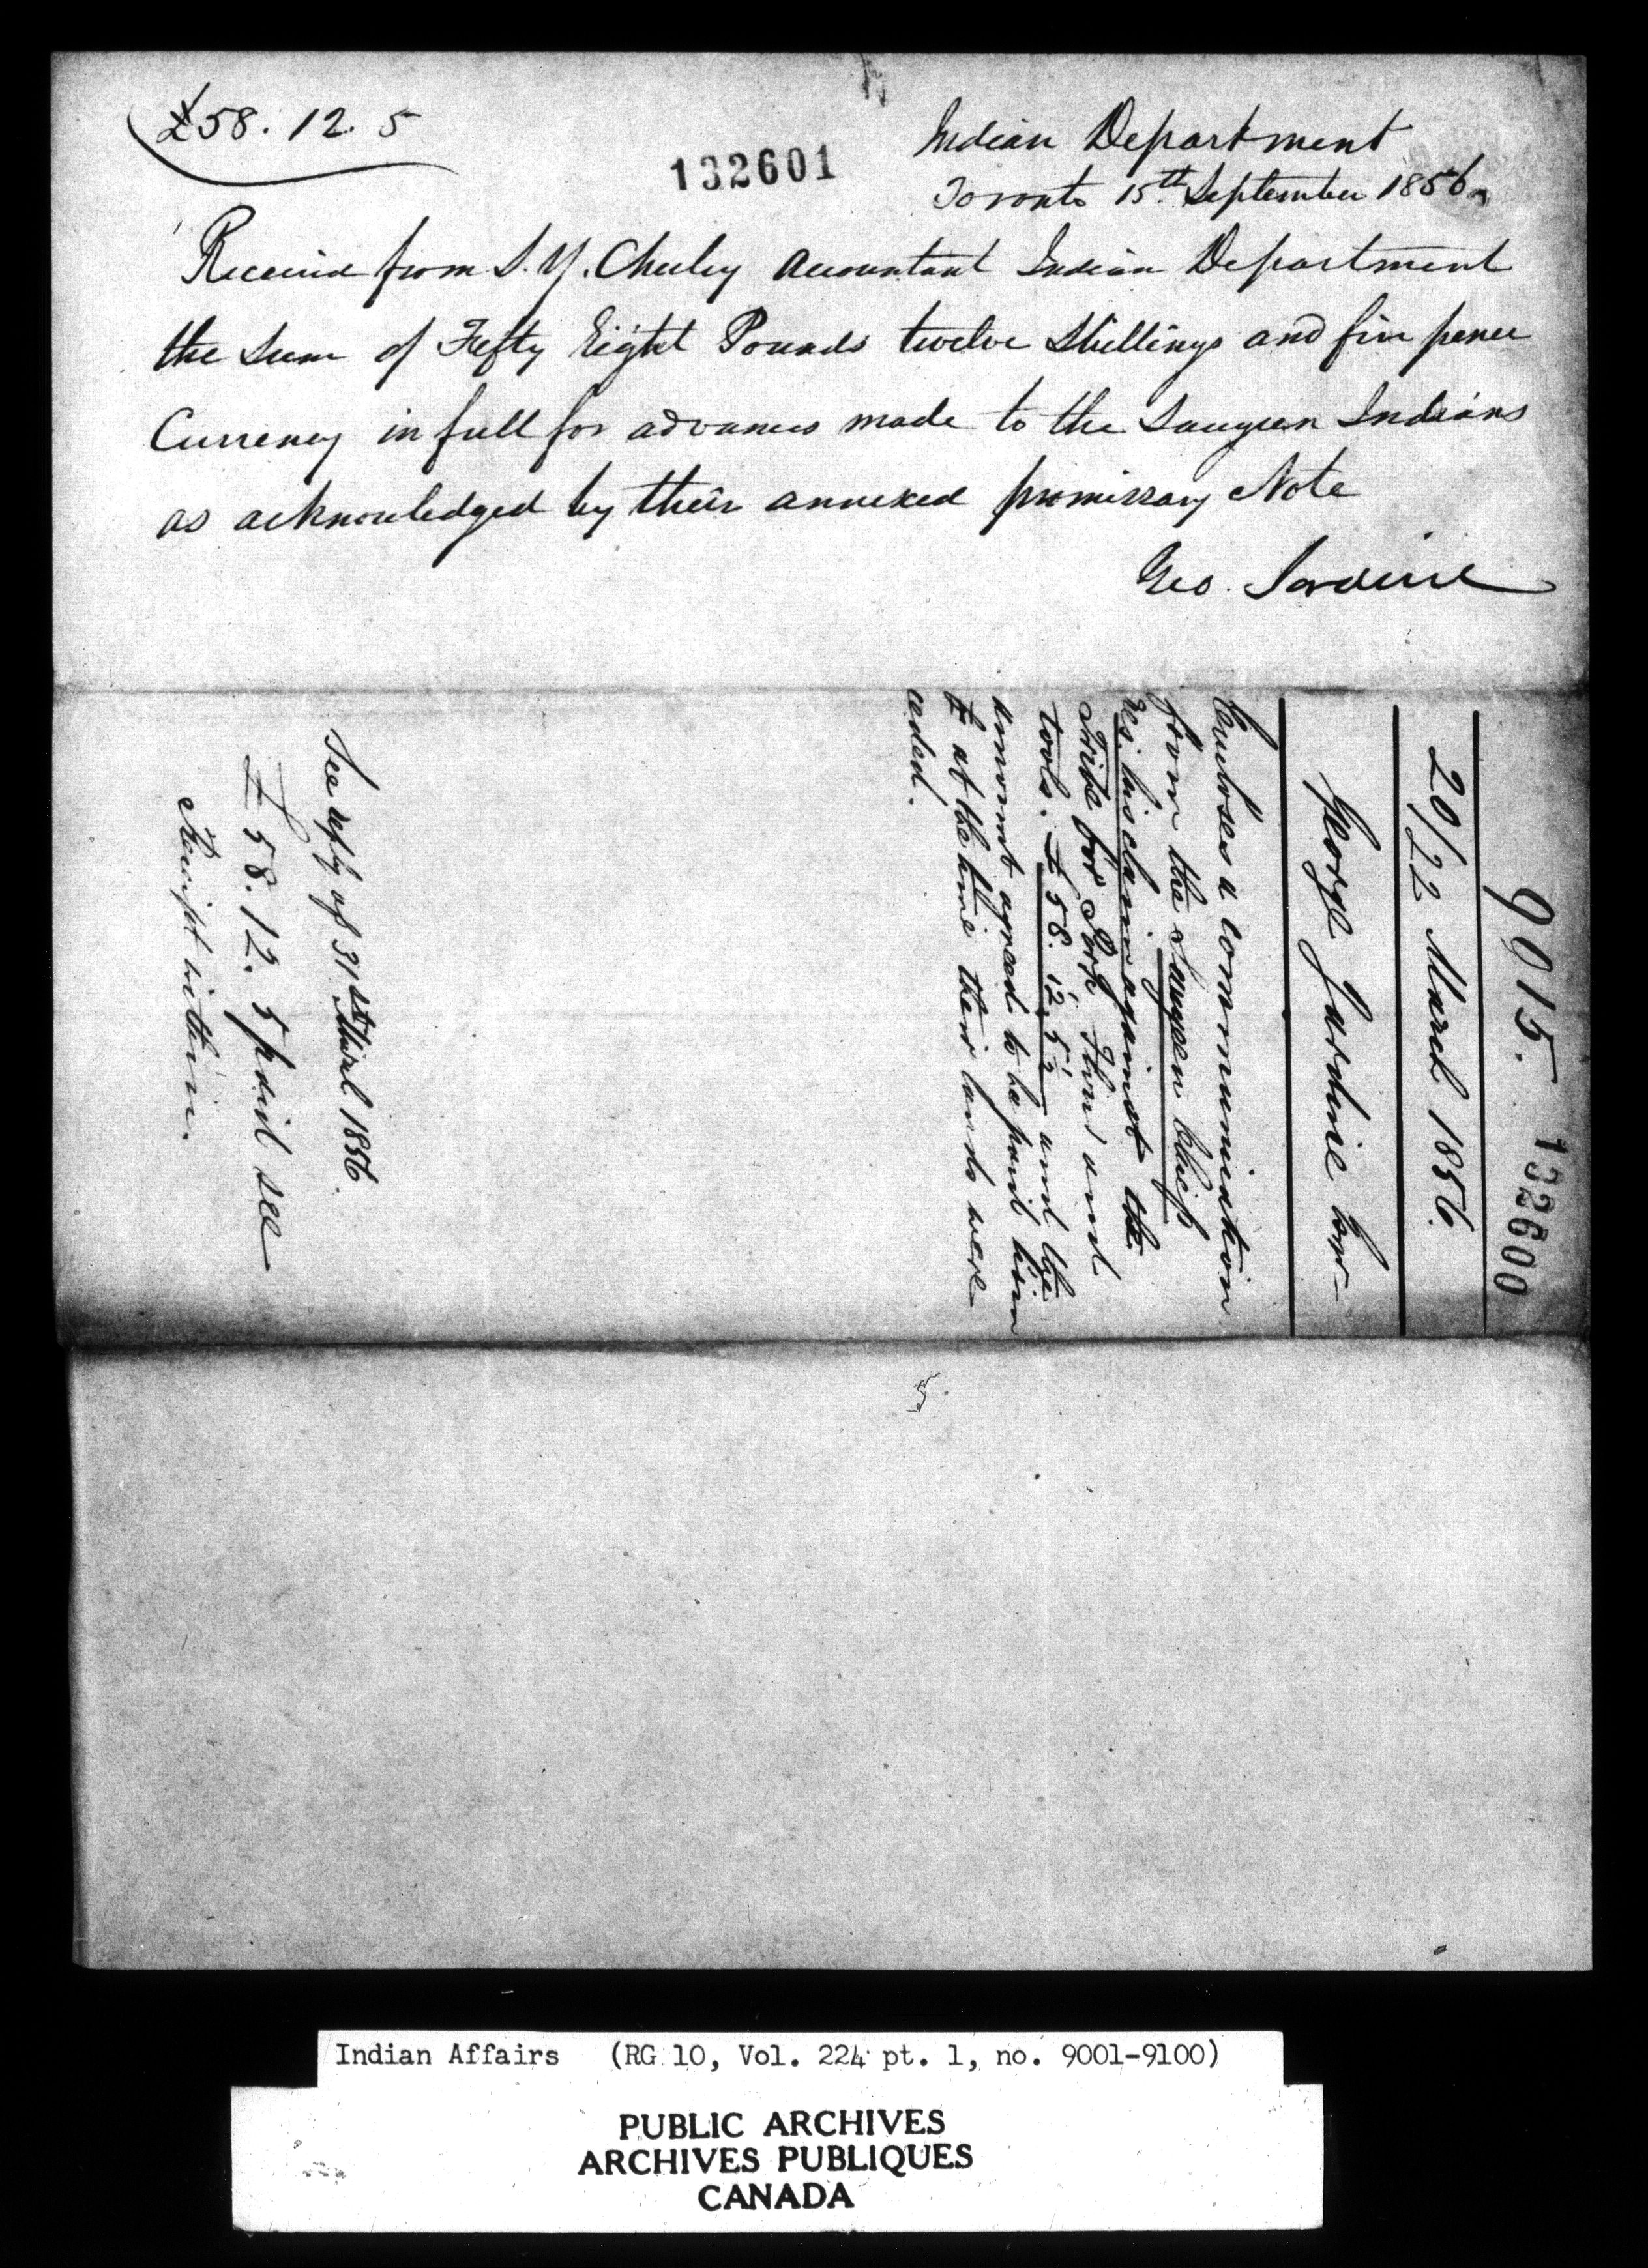 £58. 12. 5
132601
Indian Department
Toronto 15th September 1856
Received from S. Y. Chesley Accountant Indian Department
the Sum of Fifty Eight Pounds twelve Shillings and five pence
Currency in full for advances made to the Saugeen Indians
as acknowledged by their annexed promissary Note
Geo. Jardine
9015.
132600
20/22 March 1856.
George Jardine
Encloses a communication
from the Saugeen Chiefs
his claim against the
Tribe for Pork Flour and
tools. £58. 12. 5 and the
amount agreed to be paid him
at the time their lands were
ceded.
See reply of 31st March 1856.
£58. 12. 5 paid see
Receipt within.
5.
Indian Affairs (RG 10, Vol. 224 pt. 1, no. 9001-9100)
PUBLIC ARCHIVES
ARCHIVES PUBLIQUES
CANADA